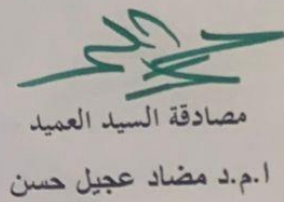 مصادقة السيد العميد
ا.م.د مضاد عجيل حسن